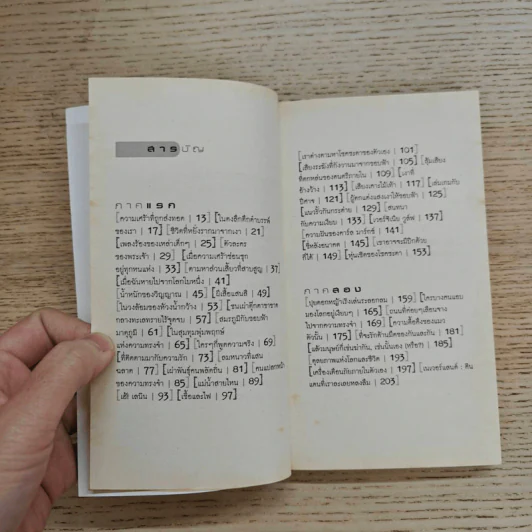 สารบัญ
ภาคแรก
[ความเศร้าที่ถูกส่งทอด | 13] [ในดงอีกดึกดำบรรพ์
ของเรา | 17] [ชีวิตที่หยั่งรากมาจากเงา | 21]
[เพลงร้องของเหล่าเด็กๆ | 25] [ตัวละคร
ของพระเจ้า | 29] [เมื่อความเศร้าซ่อนซุก
อยู่ทุกหนแห่ง | 33] [ตามหาส่วนเสี้ยวที่สาบสูญ | 37]
[เมื่อฉันหายไปจากโลกใบหนึ่ง | 41]
[น้ำหนักของวิญญาณ | 45] [ผีเสื้อแสนสี | 49]
[ในดวงส้อมของห้วงน้ำกว้าง | 53]
กลางทะเลทรายไร้จุดจบ | 57] [สมรภูมิกับขอบฟ้า
มาตุภูมิ | 61] [ในสุมทุมพุ่มพฤกษ์
แห่งความทรงจำ | 65] [ใครๆก็พูดความจริง | 69]
[ที่ติดตามมากับความรัก | 73] [ลมหนาวที่แสน
ฉลาด | 77] [เผ่าพันธุ์คนพลัดถิ่น | 81] [คนแปลกหน้า
ของความทรงจำ | 85] [แม่น้ำสายไหน | 89]
[เส้า เสนิน | 93] [เชื้อและไฟ | 97]
[เราต่างตามหาโชคชะตาของตัวเอง | 101]
[เสียงระฆังที่กังวานมาจากขอบฟ้า | 105] [สุ้มเสียง
ที่ตกหล่นของดนตรีภายใน | 109] [เงาที่
อ้างว้าง | 113] [เสียงเคาะไม้เท้า | 117] [เล่นเกมกับ
ปิศาจ | 121] [ผู้ตกแต่งแสงเงาให้รอบฟ้า | 125]
[แมวยิ้มกับกระต่าย | 129] [สนทนา
กับความเงียบ | 133] [เวอร์จิเนีย วูล์ฟ | 137]
[ความฝันของคาร์ล มาร์กซ์ | 141]
[ชีหลังอนาคต | 145] [เราอาจจะมีปีกด้วย
ก็ได้ | 149] [หุ่นเชิดของโชคชะตา | 153]
ภาคสอง
[ปุยดอกหญ้าเริงเล่นระลอกลม | 159] [ใครบางคนแอบ
มองโลกอยู่เงียบๆ | 165] [ถนนที่ค่อยๆเลือนจาง
ไปจากความทรงจำ | 169] [ความดื้อดึงของแมว
ตัวนั้น | 175] [ที่จะรักด้านมืดของกันและกัน | 181]
[แล้วมนุษย์ก็เช่นฆ่ากัน, เช่นนั้นเอง (หรือ?) | 185]
[ดุลยภาพแห่งโลกและชีวิต | 193]
[เครื่องเตือนภัยภายในตัวเอง | 197] [เนเวอร์แลนด์ : ดิน
แดนที่เราละเลยหลงลืม | 203]